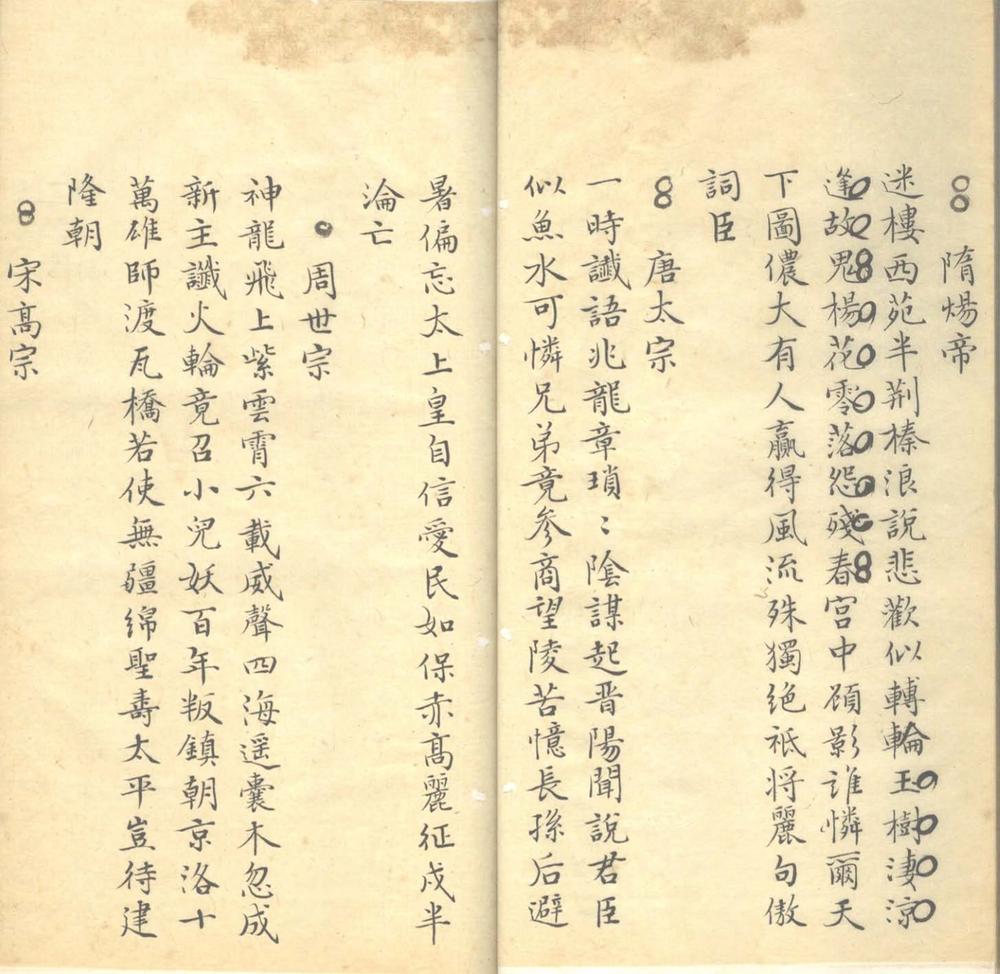 隋煬帝
迷樓西苑半荆榛浪說悲歡似轉輪玉樹淒涼
逢故鬼楊花零落怨殘春宮中顧影誰憐爾天
下圖儂大有人贏得風流殊獨絶祇将麗句傲
詞臣
唐太宗
一時讖語兆龍章瑣〻陰謀起晋陽聞說君臣
似魚水可憐兄弟竟参商望陵苦憶長孫后避
暑偏忘太上皇自信愛民如保赤髙麗征戍半
淪亡
周世宗
神龍飛上紫雲霄六載威聲四海遥囊木忽成
新主讖火輪竟召小兒妖百年叛鎮朝京洛十
萬雄師渡瓦橋若使無疆綿聖壽太平豈待建
隆朝
宋髙宗